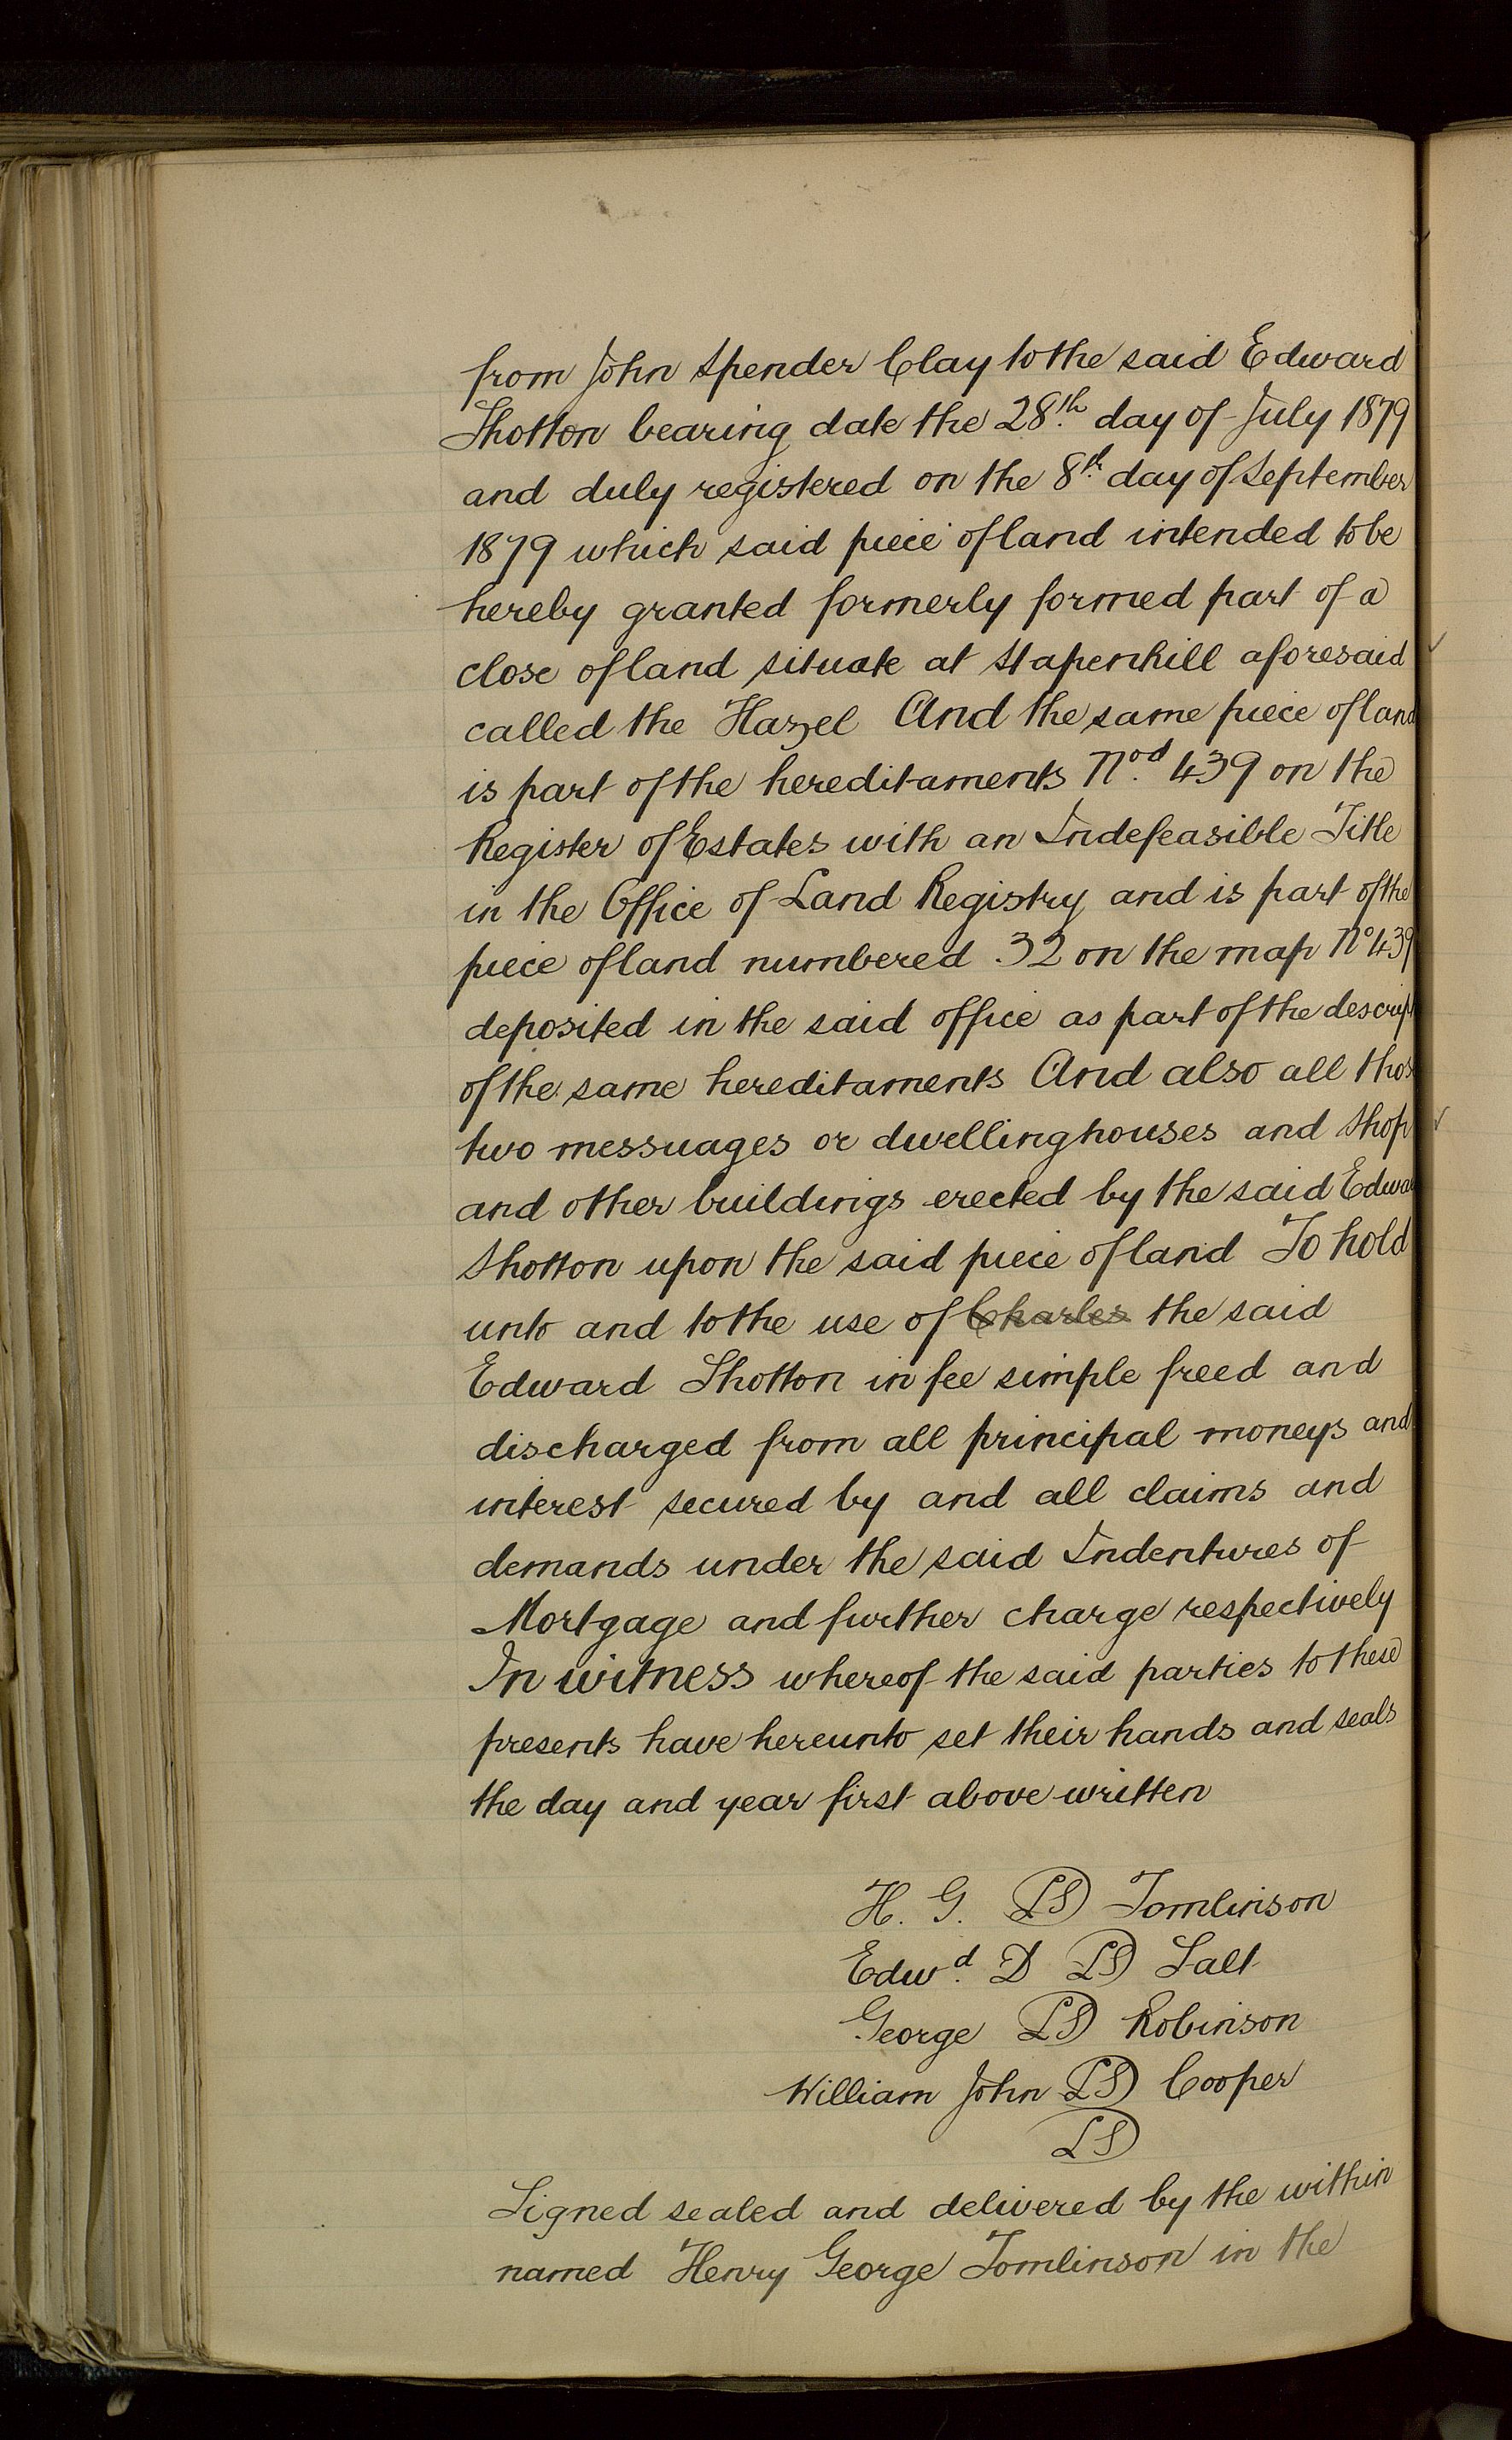 from John Spender Clay to the said Edward
Shotton bearing date the 28th day of July 1879
and duly registered on the 8th day of September
1879 which said piece of land intended to be
hereby granted formerly formed part of a
close of land situate at Stapenhill aforesaid
called the Hazel And the same piece of land
is part of the hereditaments No.d 439 on the
Register of Estates with an Indefeasible Title
in the Office of Land Registry and is part of the
piece of land numbered 32 on the map No 439
deposited in the said office as part of the descrip
of the same hereditaments And also all thos
two messuages or dwellinghouses and shop
and other buildings erected by the said Edwa
Shotton upon the said piece of land To hold
unto and to the use of Charles the said
Edward Shotton in fee simple freed and
discharged from all principal moneys and
interest secured by and all claims and
demands under the said Indentures of
Mortgage and further charge respectively
In witness whereof the said parties to these
presents have hereunto set their hands and seals
the day and year first above written
H. G. LS Tomlinson
Edwd. D LS Salt
George LS Robinson
William John LS Cooper
LS
Signed sealed and delivered by the within
named Henry George Tomlinson in the